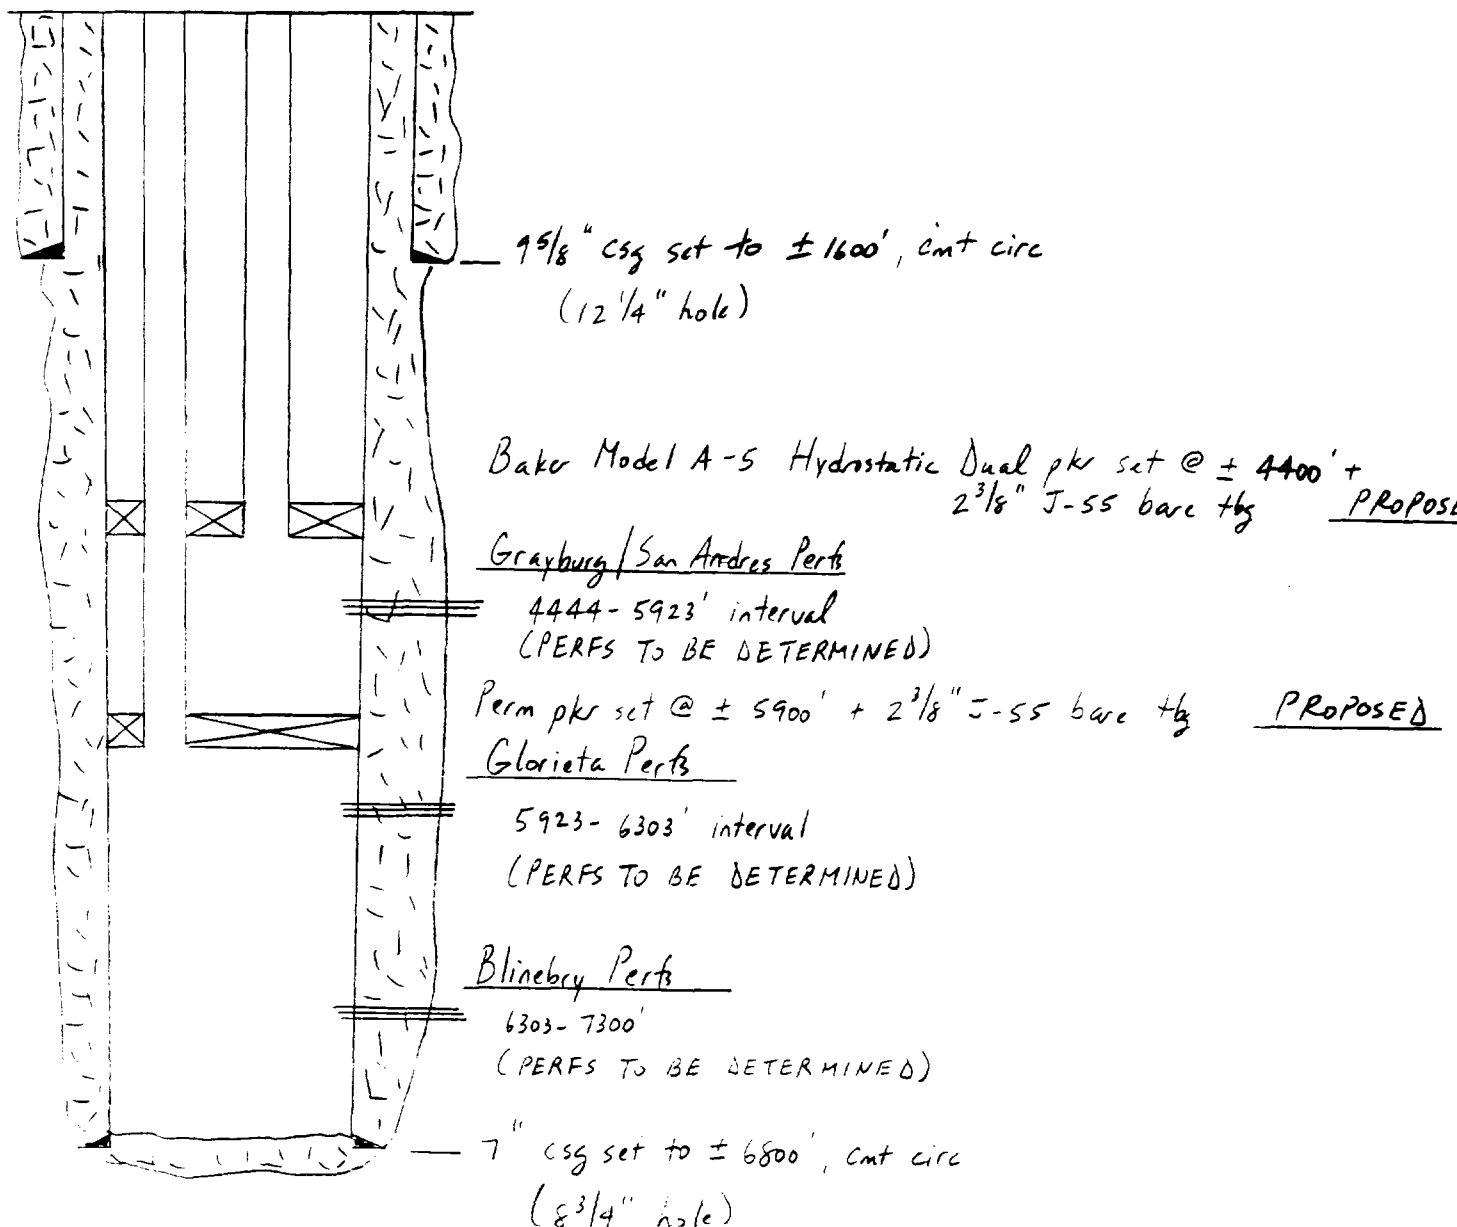 9 5/8" csg set to ± 1600', cmt circ
(12 1/4" hole)
Baker Model A-5 Hydrostatic Dual pkr set @ ± 4400' +
2 3/8" J-55 bare tbg PROPOSE
Grayburg/San Andres Perfs
4444-5923' interval
(PERFS TO BE DETERMINED)
Perm pkr set @ ± 5900' + 2 3/8" J-55 bare tbg PROPOSED
Glorieta Perfs
5923-6303' interval
(PERFS TO BE DETERMINED)
Blinebry Perfs
6303-7300'
(PERFS TO BE DETERMINED)
7" csg set to ± 6800', cmt circ
(8 3/4" hole)